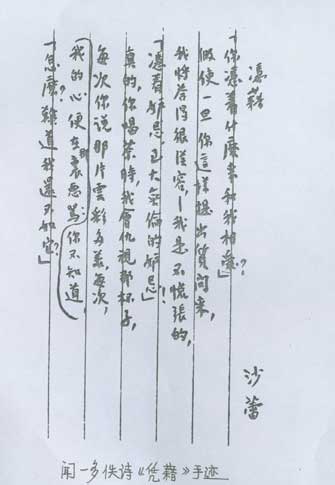 憑藉
沙蕾
「你憑着什麼來和我相愛?」
假使一旦你這樣提出質問來,
我將答得很從容—我是不慌張的,
「憑着妒忌,至大無倫的妒忌!」
真的,你喝茶時,我會仇視那杯子,
每次你說那片雲彩多美,每次,
我的心便在那裏惡罵,你不知道,
「怎麼?難道我還不如它?」
闻一多佚诗《凭藉》手迹